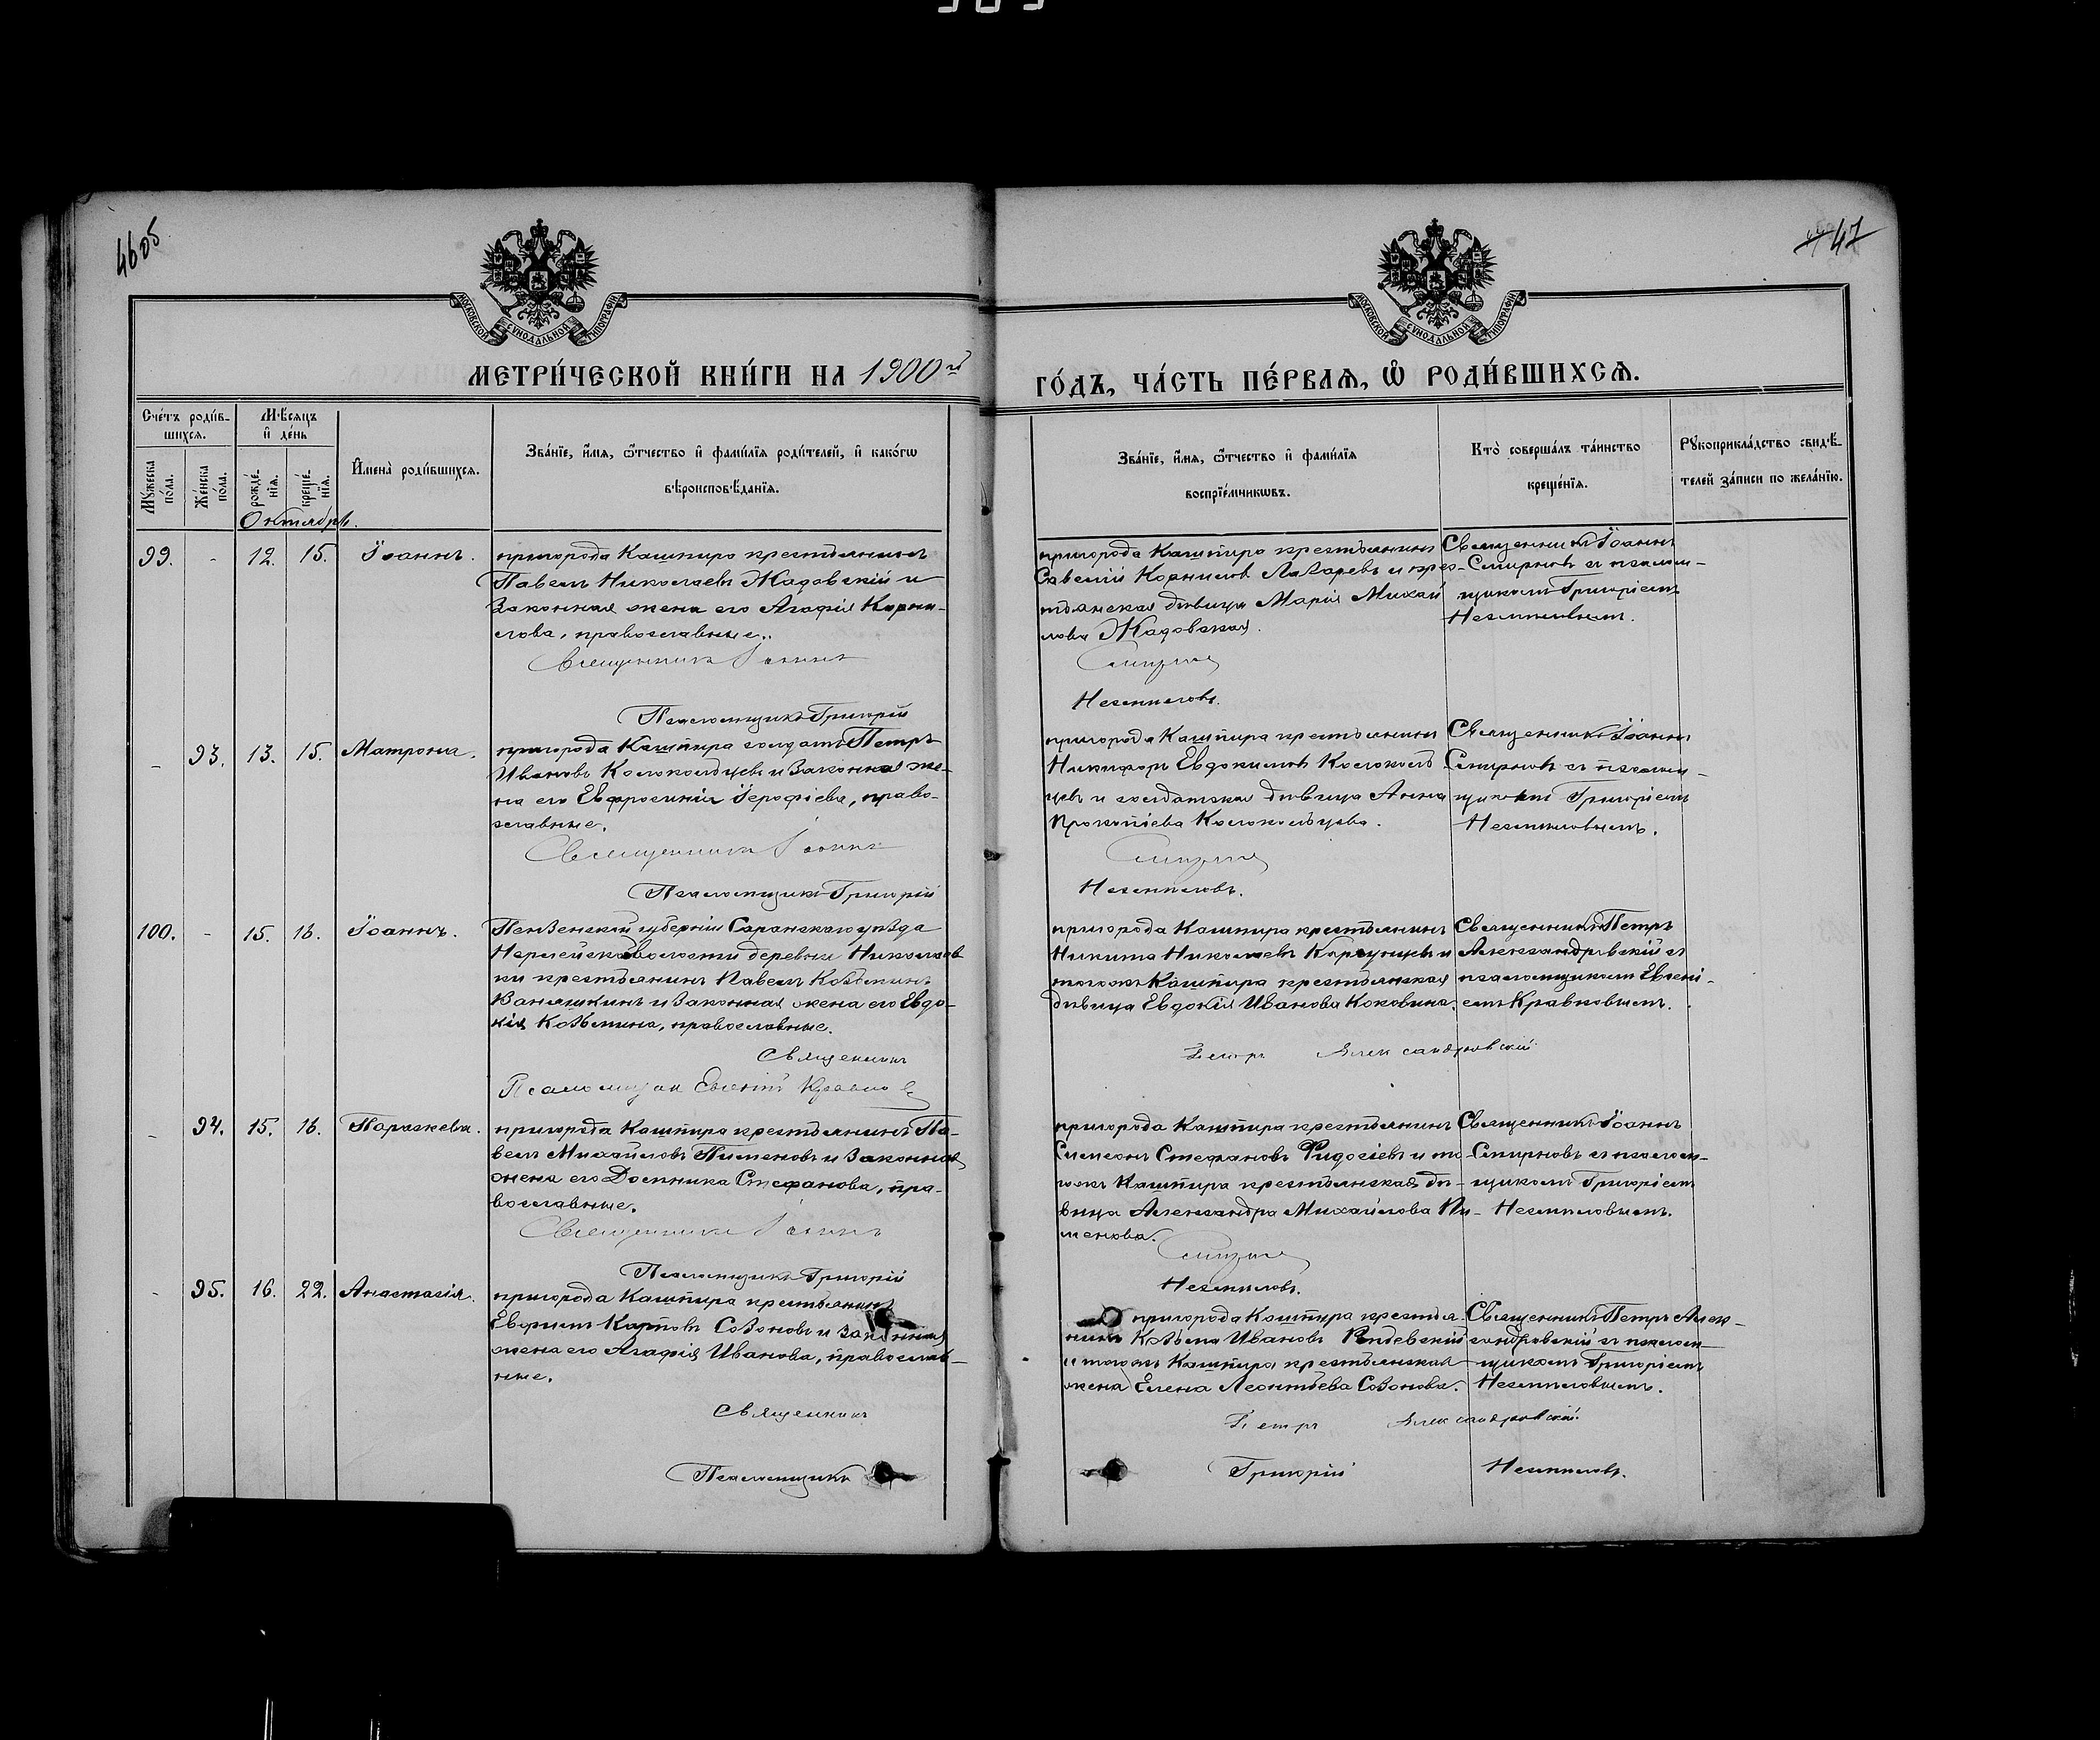 4605
47
МОСКОВСКОЙ СУНОДАЛЬНОЙ ТИПОГРАФІИ
МОСКОВСКОЙ СУНОДАЛЬНОЙ ТИПОГРАФІИ
МЕТРИ́ЧЕСКОЙ КНИ́ГИ НА 1900 й
ГО́ДЪ, ЧА́СТЬ ПЕ́РВАѦ, Ѡ҆ РОДИ́ВШИХСѦ.
Сче́тъ роди́в-
шихсѧ.
Мꙋ́жеска по́ла.
Же́нска по́ла.
Мѣ́сяцъ
и҆ де́нь
рожде́-
нїѧ.
креще́-
нїѧ.
И҆мена̀ роди́вшихсѧ.
Зва́нїе, и҆́мѧ, ѻ҆́тчество и҆ фами́лїѧ роди́телей, и҆ како́гѡ
вѣроисповѣ́данїѧ.
Зва́нїе, и҆́мѧ, ѻ҆́тчество и҆ фами́лїѧ
воспрїе́мникѡвъ.
Кто̀ соверша́лъ та́инство
креще́нїѧ.
Рꙋкоприкла́дство свидѣ́-
телей за́писи по жела́нїю.
Октябрь.
99. - 12. 15. Іоаннъ.
пригорода Кашпира крестьянинъ
Павелъ Николаевъ Жадовскій и
законная жена его Агафія Корни-
лова, православные.
Священникъ Іоаннъ
Псаломщикъ Григорій
пригорода Кашпира крестьянинъ
Савелій Корнилов Лазаревъ и крес-
тьянская дѣвица Марія Михай
лова Жадовская.
Смирновъ
Несмеловъ.
Священникъ Іоаннъ
Смирновъ съ псалом-
щикомъ Григоріемъ
Несмеловымъ.
- 93. 13. 15. Матрона.
пригорода Кашпира солдатъ Петръ
Ивановъ Колокольцевъ и законная же-
на его Евфросинія Іерофіева, право-
славные.
Священникъ Іоаннъ
Псаломщикъ Григорій
пригорода Кашпира крестьянинъ
Никифоръ Евдокимовъ Колоколь
цевъ и солдатская дѣвица Анна
Прокопіева Колокольцева.
Смирновъ
Несмеловъ.
Священникъ Іоаннъ
Смирновъ съ псалом-
щикомъ Григоріемъ
Несмеловымъ.
100. - 15. 16. Іоаннъ.
Пензенской губерніи Саранскаго уѣзда
волости деревни Николаев
ки крестьянинъ Павелъ Козьминъ
Ваняшкинъ и законная жена его Евдо-
кія Козьмина, православные.
Священникъ
Псаломщик Евгеній
пригорода Кашпира крестьянинъ
Никита Николаевъ и
тогожъ Кашпира крестьянская
дѣвица Евдокія Иванова Коковина.
Петръ Александровскій.
Священникъ Петръ
Александровскій съ
псаломщикомъ Евгені-
емъ Кравковымъ.
- 94. 15. 16. Параскева.
пригорода Кашпира крестьянинъ Па-
велъ Михайловъ Пименовъ и законная
жена его Домника Стефанова, пра-
вославные.
Священникъ Іоаннъ
Псаломщикъ Григорій
пригорода Кашпира крестьянинъ
Симеонъ Стефановъ Фидосіевъ и то-
гожъ Кашпира крестьянская дѣ-
вица Александра Михайлова Пи-
менова.
Смирновъ
Несмеловъ.
Священникъ Іоаннъ
Смирновъ съ псалом-
щикомъ Григоріемъ
Несмеловымъ.
- 95. 16. 22. Анастасія.
пригорода Кашпира крестьянинъ
Карповъ Созоновъ и законная
жена его Агафія Иванова, православ-
ные.
Священникъ
Псаломщикъ
пригорода Кашпира крестья-
нинъ Козьма Ивановъ
и тогожъ Кашпира крестьянская
жена Елена Леонтьева Созонова.
Петръ Александровскій.
Григорій Несмеловъ.
Священникъ Петръ Алек-
сандровскій съ псалом-
щикомъ Григоріемъ
Несмеловымъ.